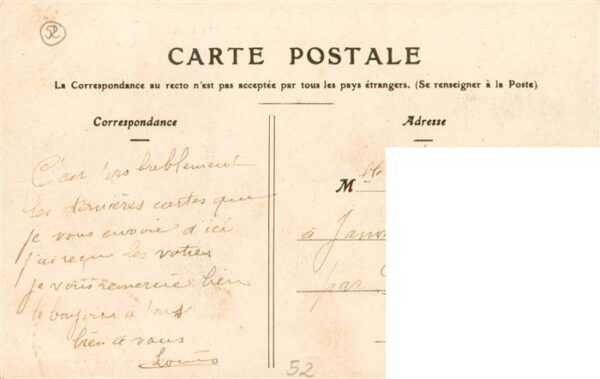 52
CARTE POSTALE
La Correspondance au recto n'est pas acceptée par tous les pays étrangers. (Se renseigner à la Poste)
Correspondance
Adresse
C'est probablement
les dernières cartes que
je vous envoie d'ici
j'ai reçue les votres
je vous remercie bien
le bonjour à
bien a vous
Louis
M
à
par
52